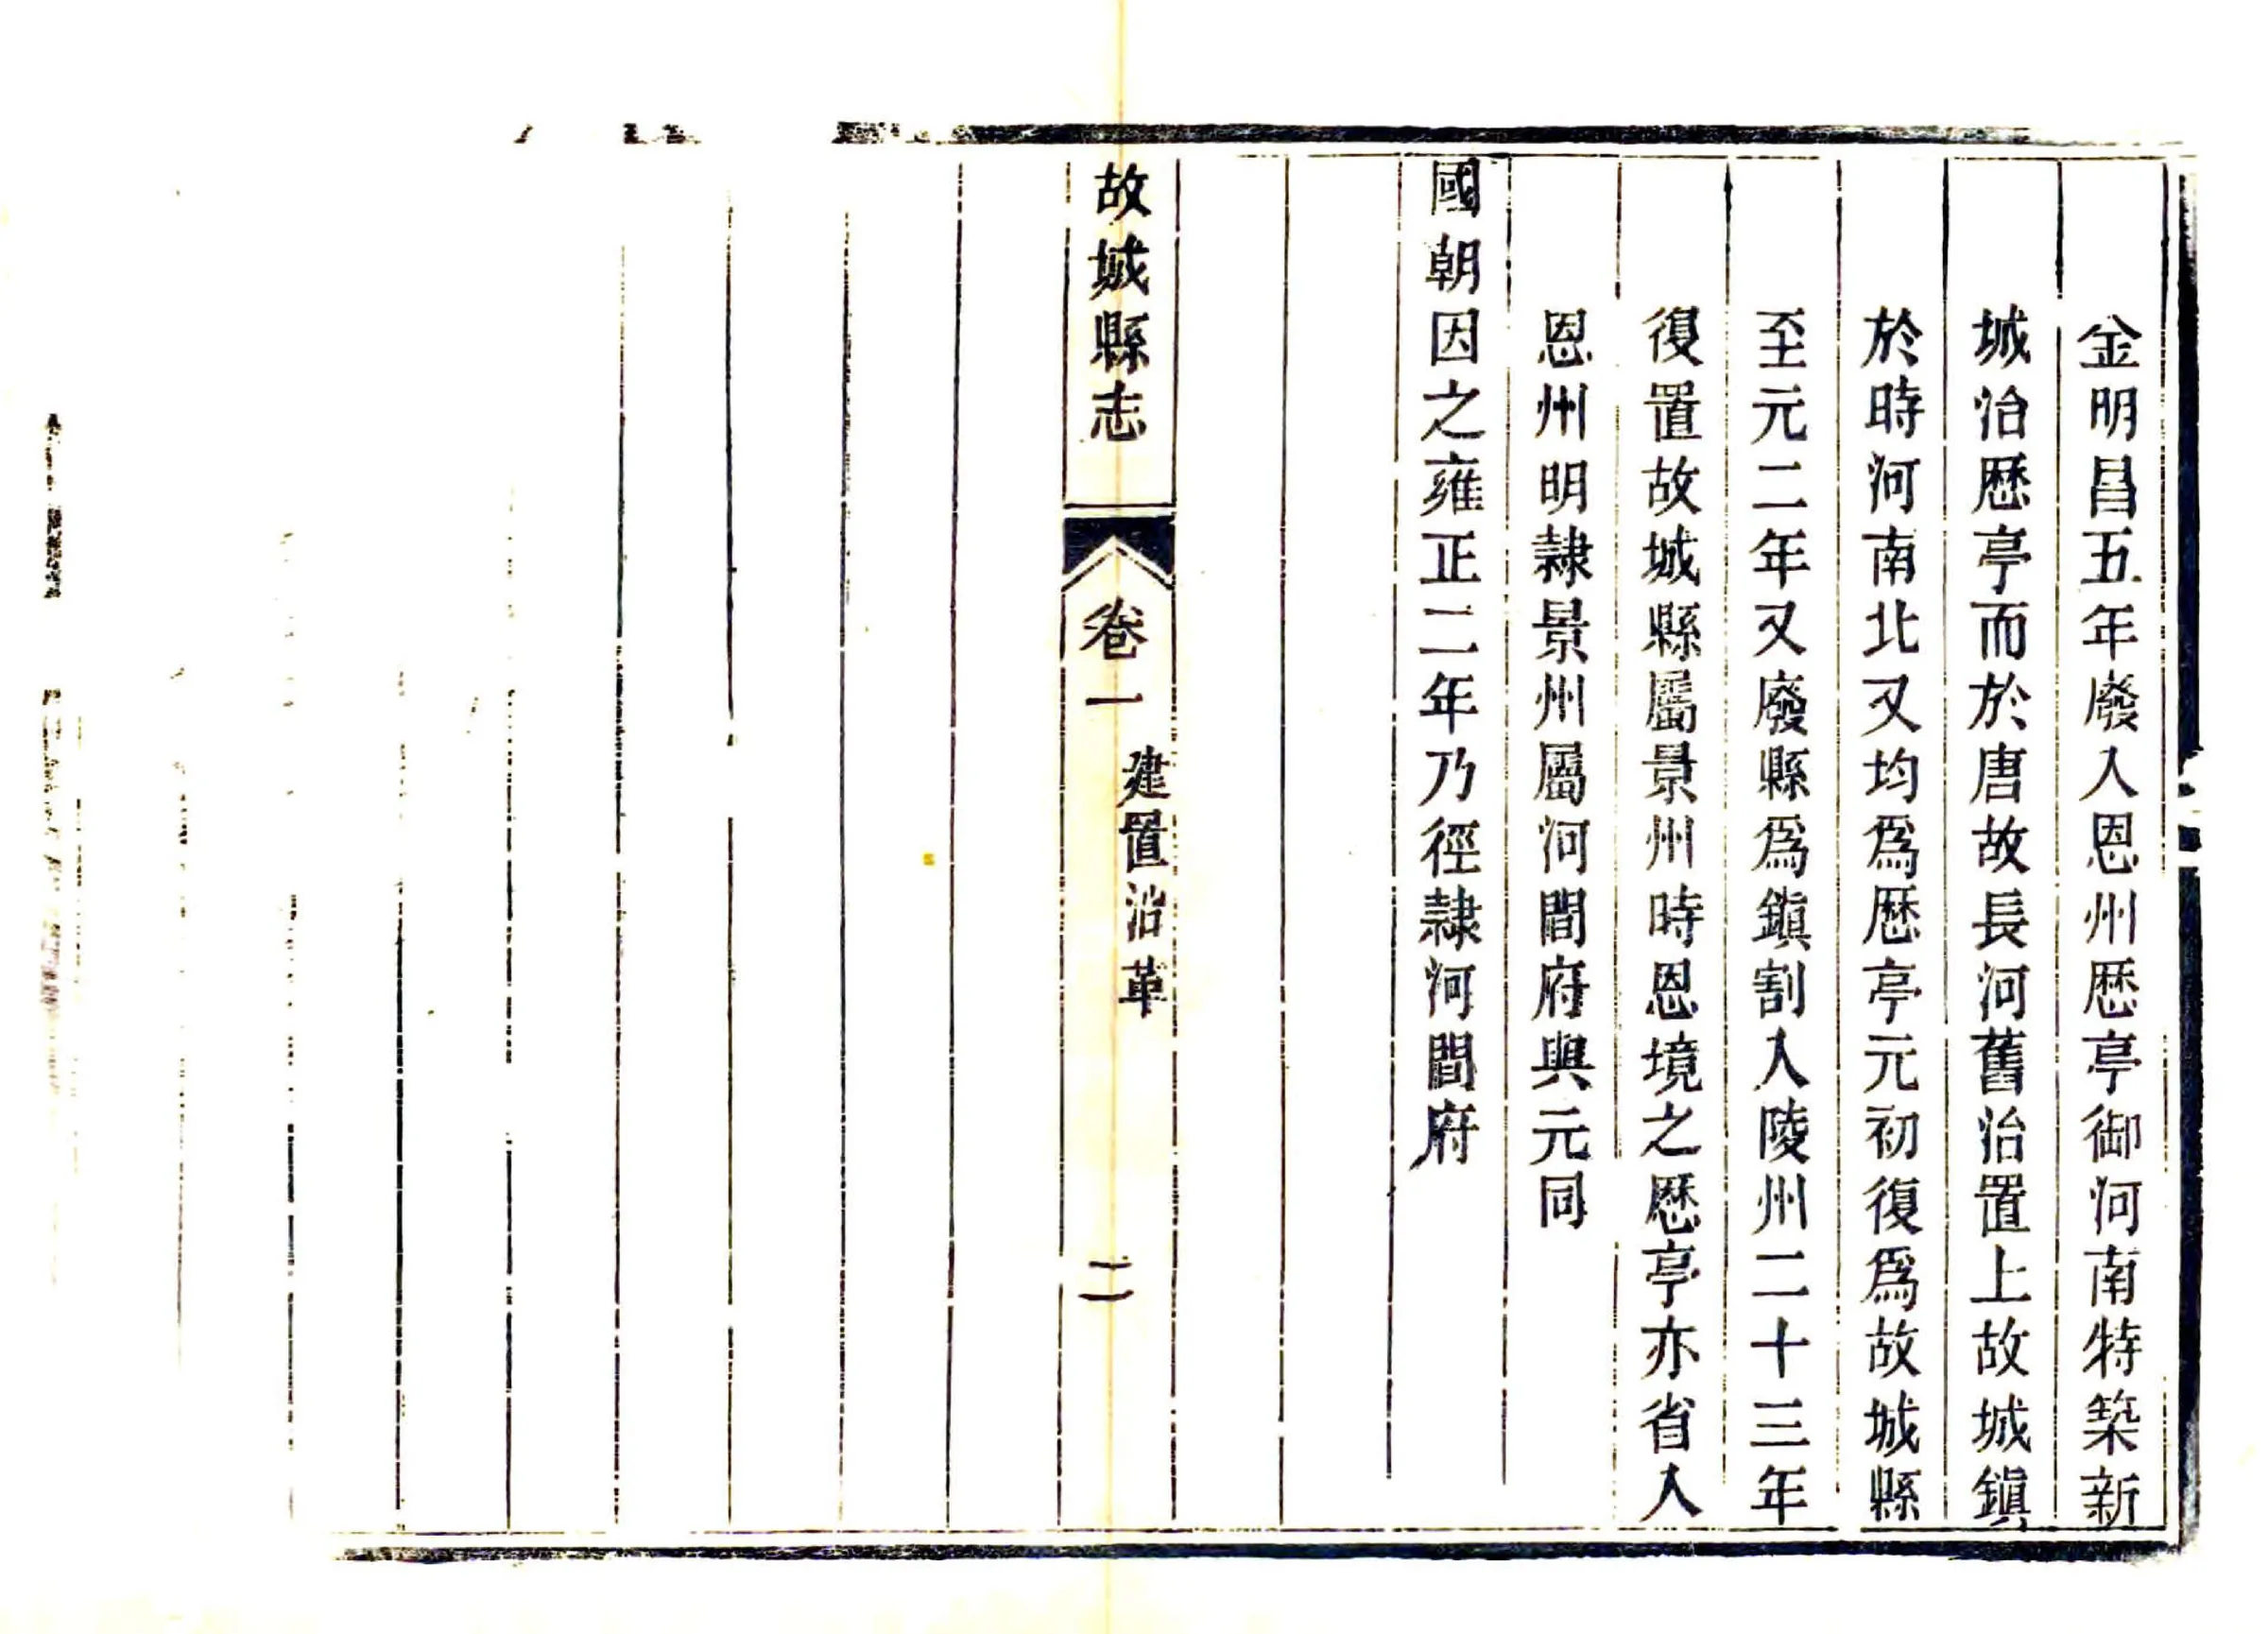 金明昌五年廢入恩州歷亭御河南特築新
城治歷亭而於唐故長河舊治置上故城鎭
於時河南北又均爲歷亭元初復爲故城縣
至元二年又廢縣爲鎭割入陵州二十三年
復置故城縣屬景州時恩境之歷亭亦省入
恩州明隷景州屬河間府與元同
國朝因之雍正二年乃徑隷河間府
故城縣志
卷一
建置沿革
二